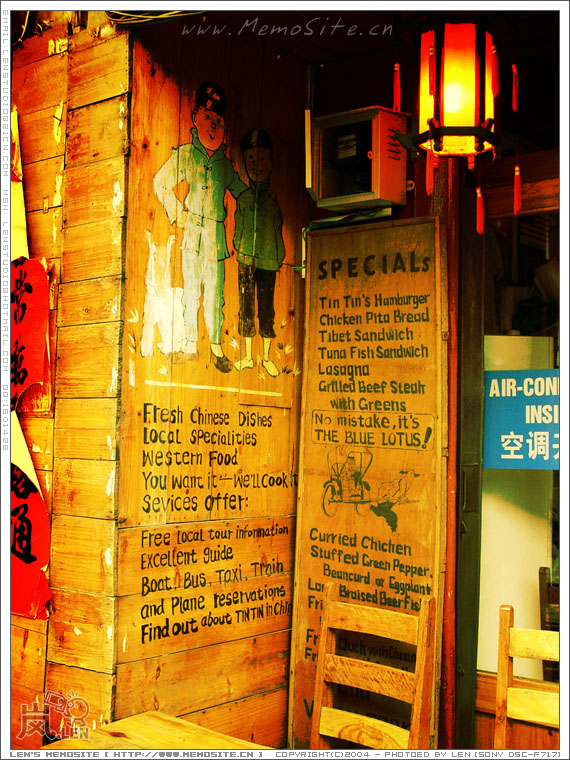 www.MemoSite.cn
EMAIL:LENSTUDIO@21CN.COM MSN: LENSTUDIO@HOTMAIL.COM QQ:1501426
SPECIALs
Tin Tin's Hamburger
Chicken Pita Bread
Tibet Sandwich
Tuna Fish Sandwich
Lasagna
Grilled Beef Steak
with Greens
No mistake, it's
THE BLUE LOTUS!
Curried Chicken
Stuffed Green Pepper,
Beancurd or Eggplant
Braised Beef
Duck with
Fresh Chinese Dishes
Local Specialities
Western Food
You Want it—We'll Cook it
Sevices Offer:
Free local tour information
Excellent guide
Boat, Bus, Taxi, Train
and Plane reservations
Find out about TINTIN in Chin
AIR-CON
INSI
空调
通
岚
LEN
LEN'S MEMOSITE [ HTTP://WWW.MEMOSITE.CN ] COPYRIGHT(C)2004 - PHOTOED BY LEN [SONY DSC-F717]